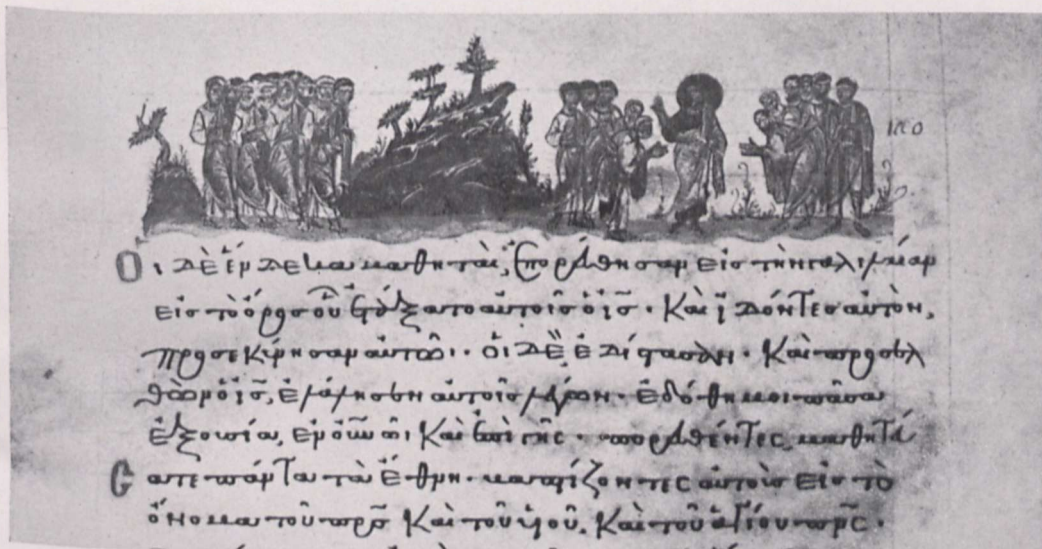 Οἱ δὲ ἕνδεκα μαθηταὶ, ἐπορεύθησαν εἰς τὴν γαλιλαίαν
εἰς τὸ ὄρος οὗ ἐτάξατο αὐτοῖς ὁ ις̅. Καὶ ἰδόντες αὐτὸν,
προσεκύνησαν αὐτῶ. οἱ δὲ ἐδίστασαν. Καὶ προσελ
θὼν ὁ ις̅, ἐλάλησεν αὐτοῖς λέγων. ἐδόθη μοι πᾶσα
ἐξουσία, ἐν οὐνῶ, Καὶ ἐπὶ γῆς. πορευθέντες μαθητεύ
σατε πάντα τὰ ἔθνη. βαπτίζοντες αὐτοὺς εἰς τὸ
ὄνομα τοῦ πρς̅ Καὶ τοῦ υἱοῦ, Καὶ τοῦ ἁγίου πνς̅.